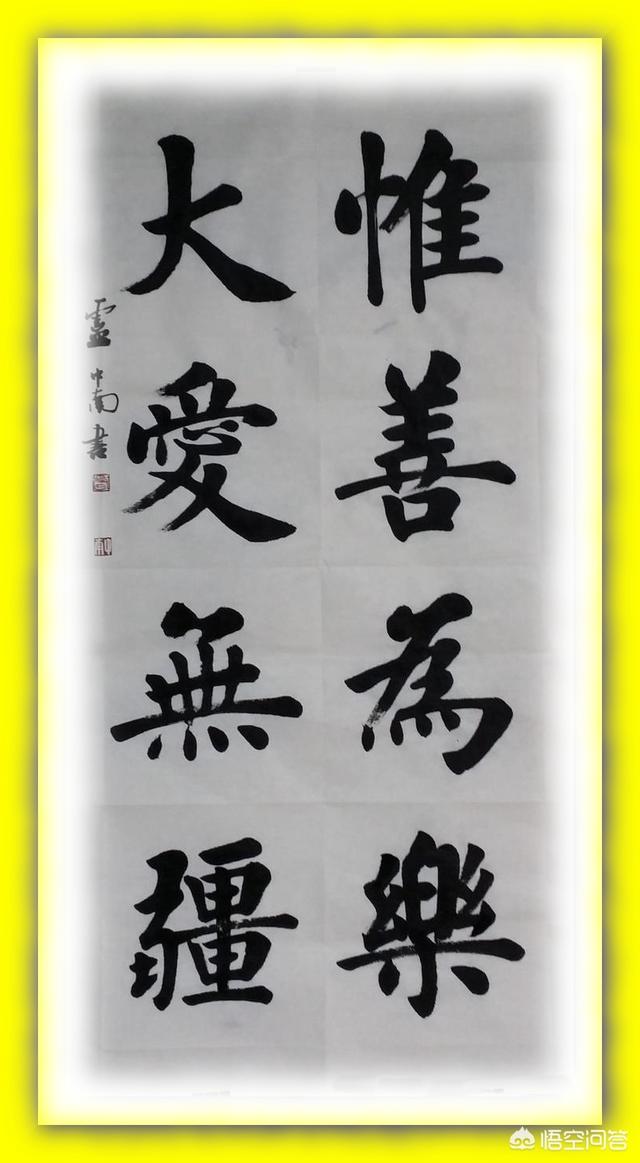 惟善為樂
大愛無疆
中南書
悟空问答